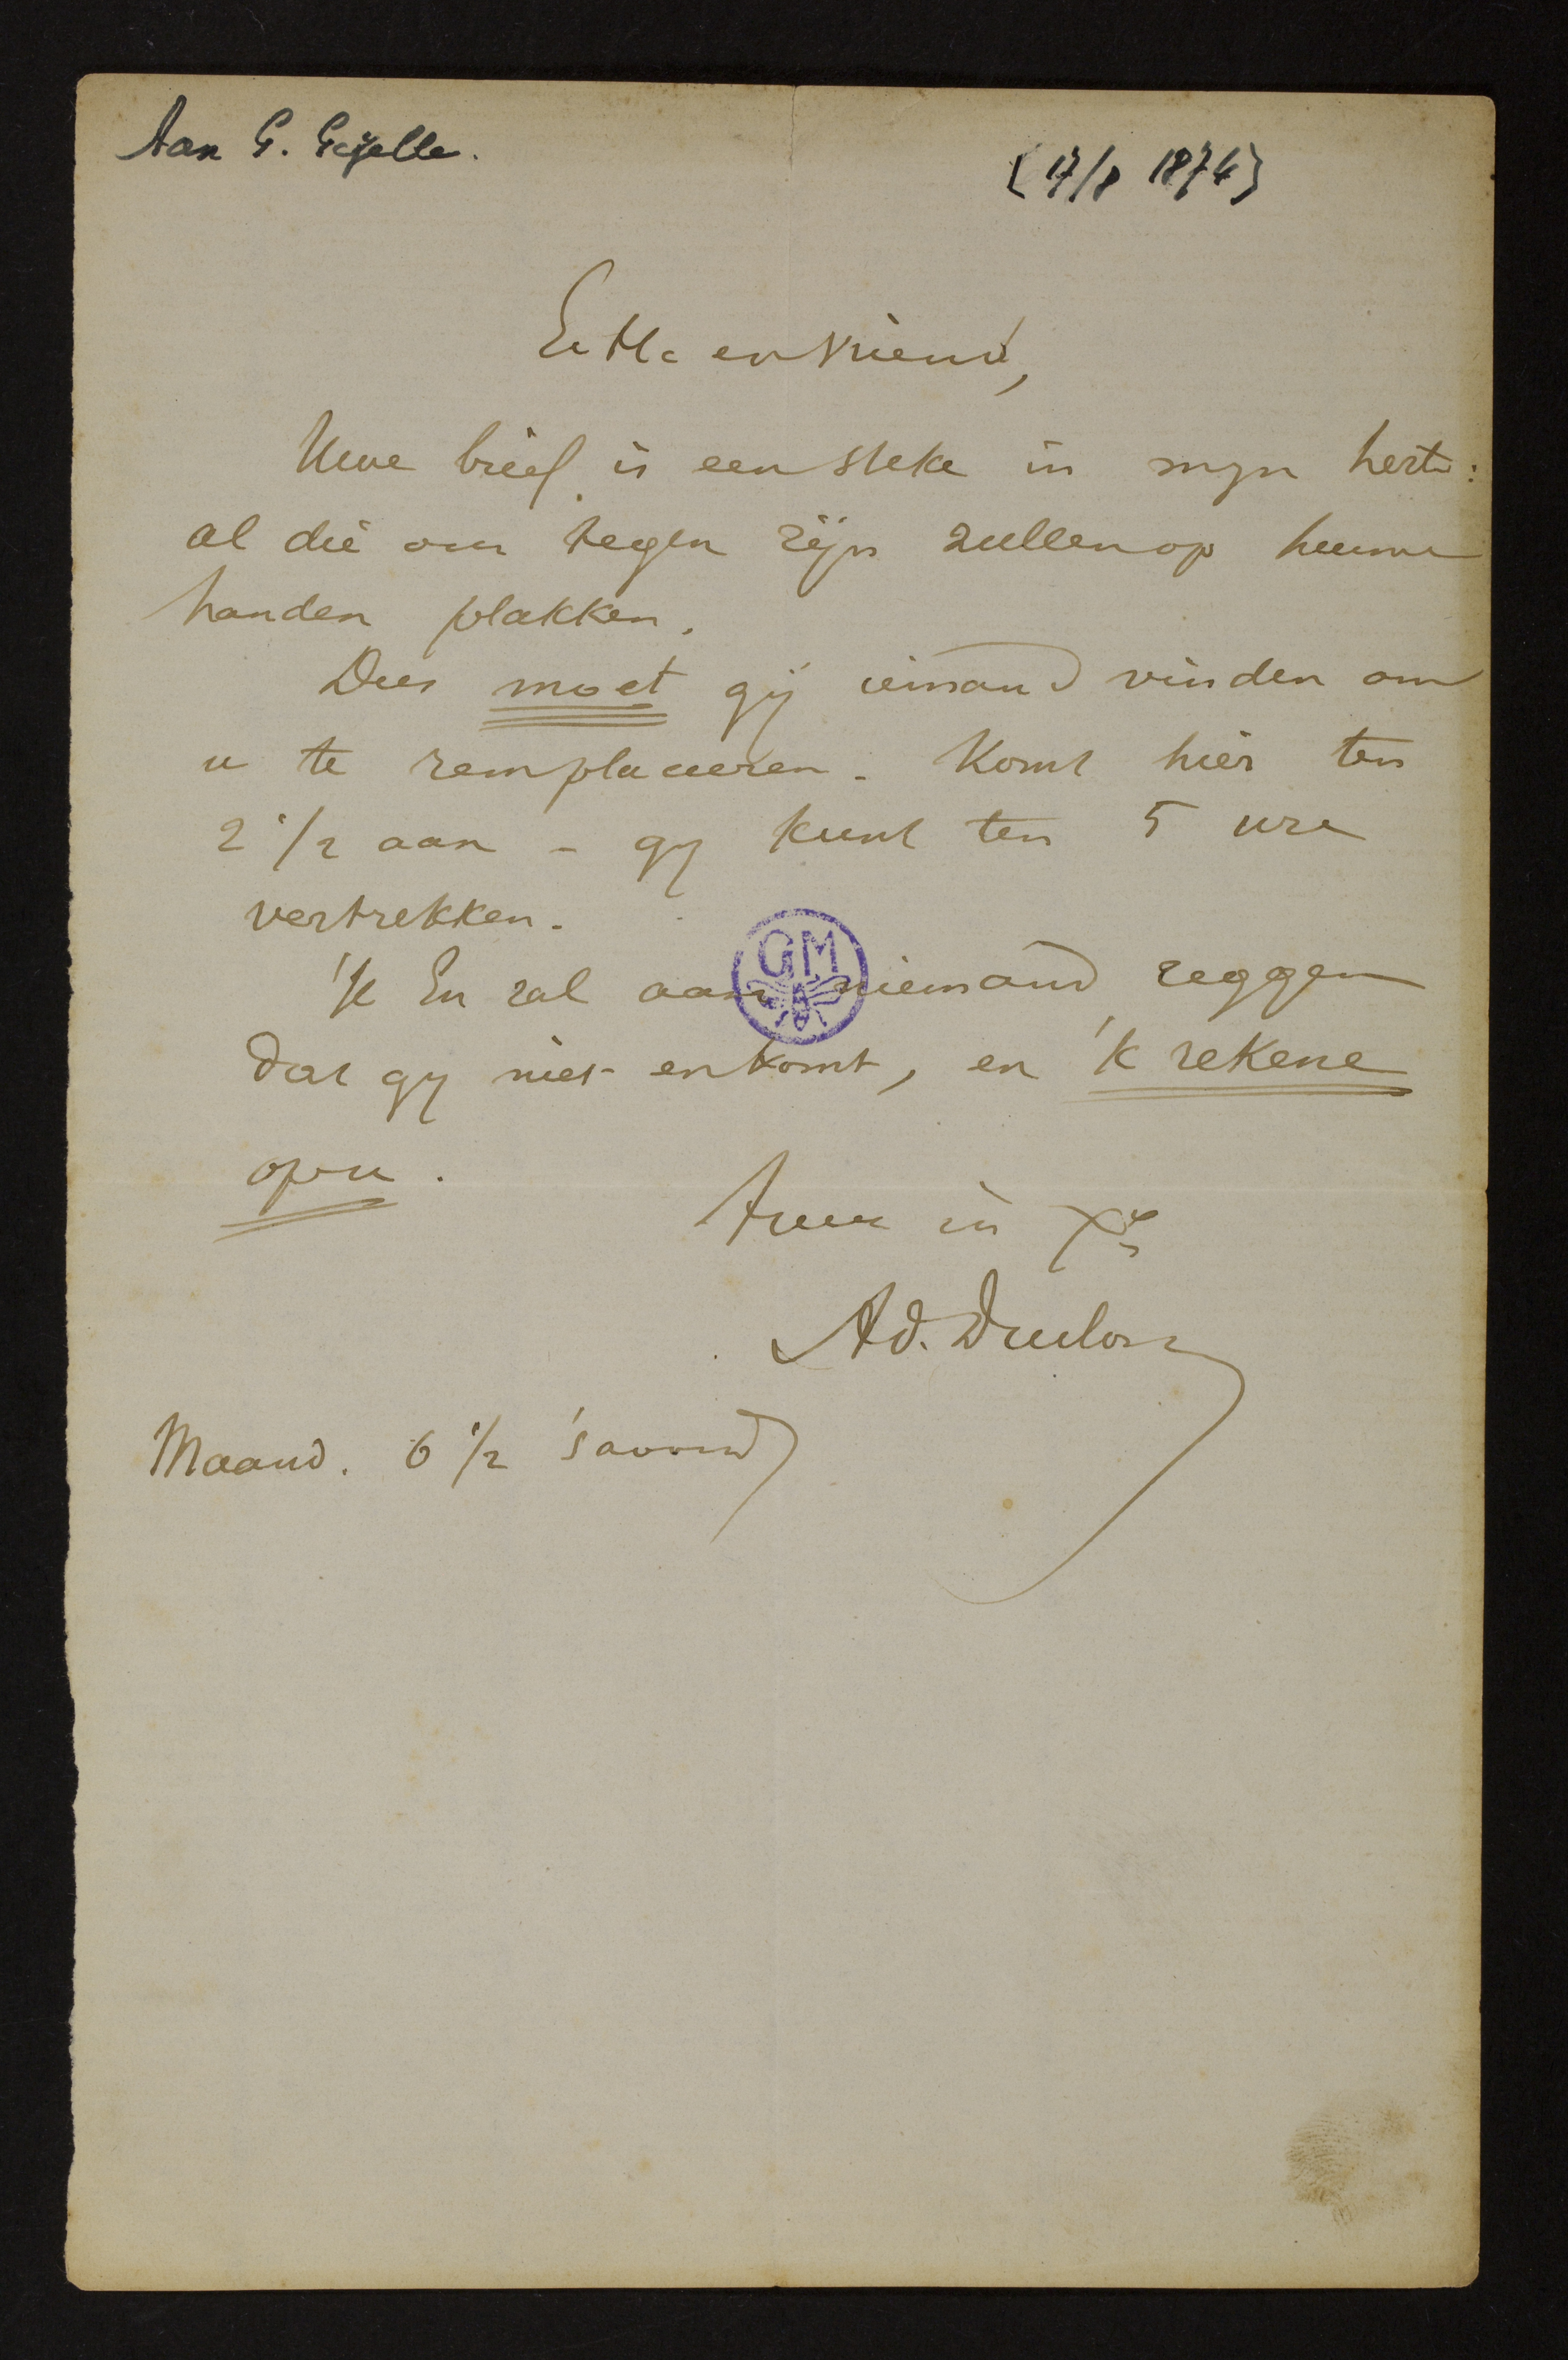 Aan G. Gezelle.
[17/8 1874]
E. H. en Vriend,
Uwe brief is een steke in myn herte:
al die ons tegen zijn zullen op hunne
handen plakken.
Dus moet gij iemand vinden om
u te remplaceeren. Komt hier ten
2 1/2 aan – gy kunt ten 5 ure
vertrekken.
'K En zal aan niemand zeggen
dat gy niet en komt, en 'k rekene
op u.
GM
Uwe in Xo
Ad. Duclos
Maand. 6 1/2 's avonds